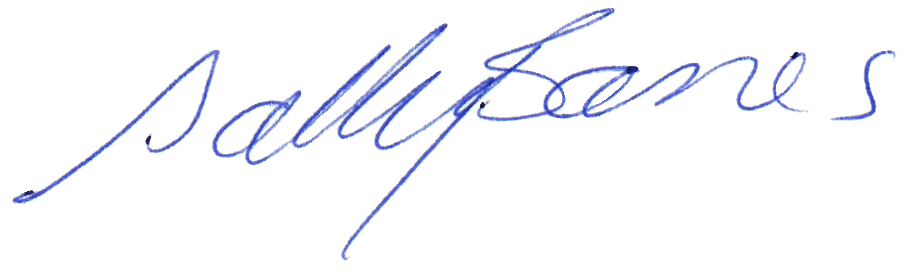 Sally Banes